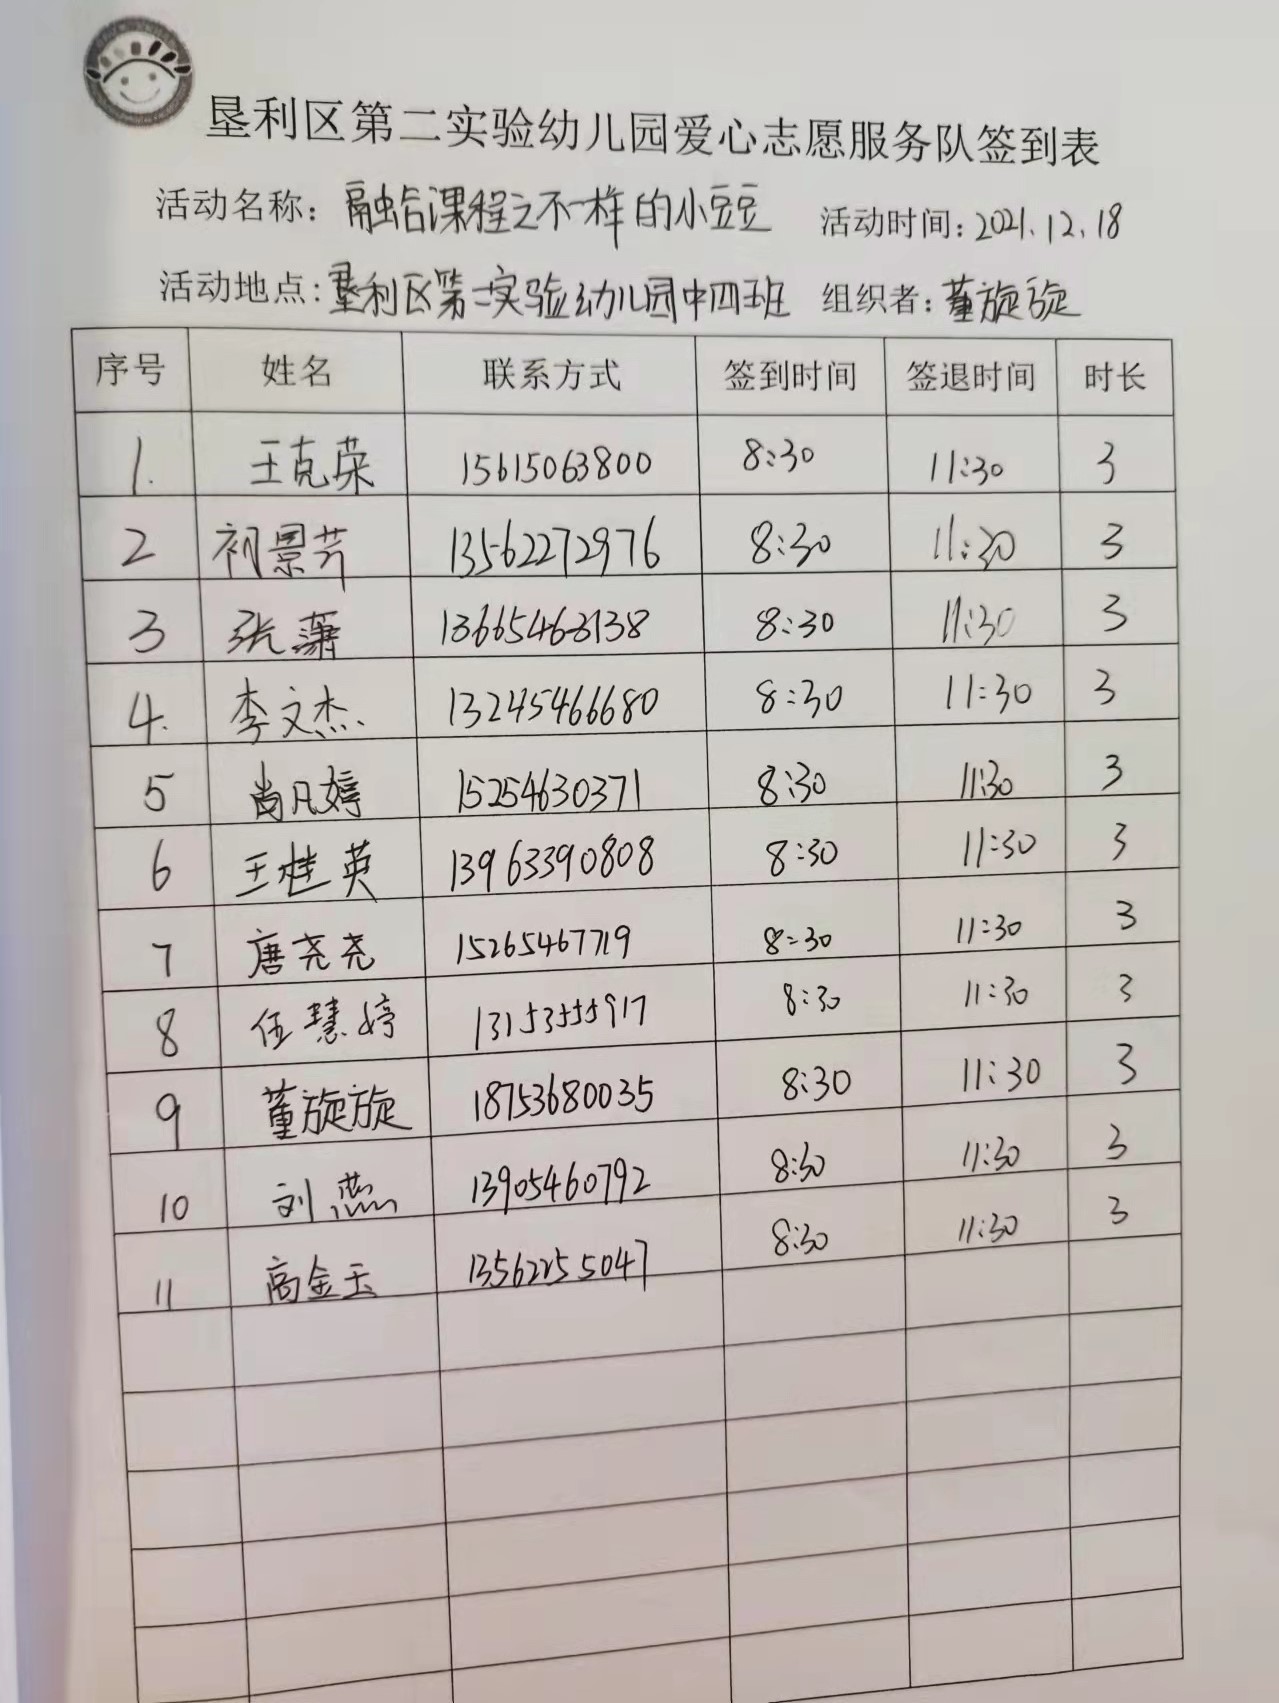 垦利区第二实验幼儿园爱心志愿服务队签到表
活动名称：融合课程之不一样的小豆豆 活动时间：2021.12.18
活动地点：垦利区第二实验幼儿园中四班 组织者：董旋旋
序号 姓名 联系方式 签到时间 签退时间 时长
1. 王克荣 15615063800 8:30 11:30 3
2 初景芳 13562272976 8:30 11:30 3
3 张潇 13665463138 8:30 11:30 3
4. 李文杰 13245466680 8:30 11:30 3
5 尚凡婷 15254630371 8:30 11:30 3
6 王桂英 13963390808 8:30 11:30 3
7 唐尧尧 15265467719 8:30 11:30 3
8 任慧婷 13153555917 8:30 11:30 3
9 董旋旋 18753680035 8:30 11:30 3
10 刘燕 13905460792 8:30 11:30 3
11 高金玉 13562255047 8:30 11:30 3